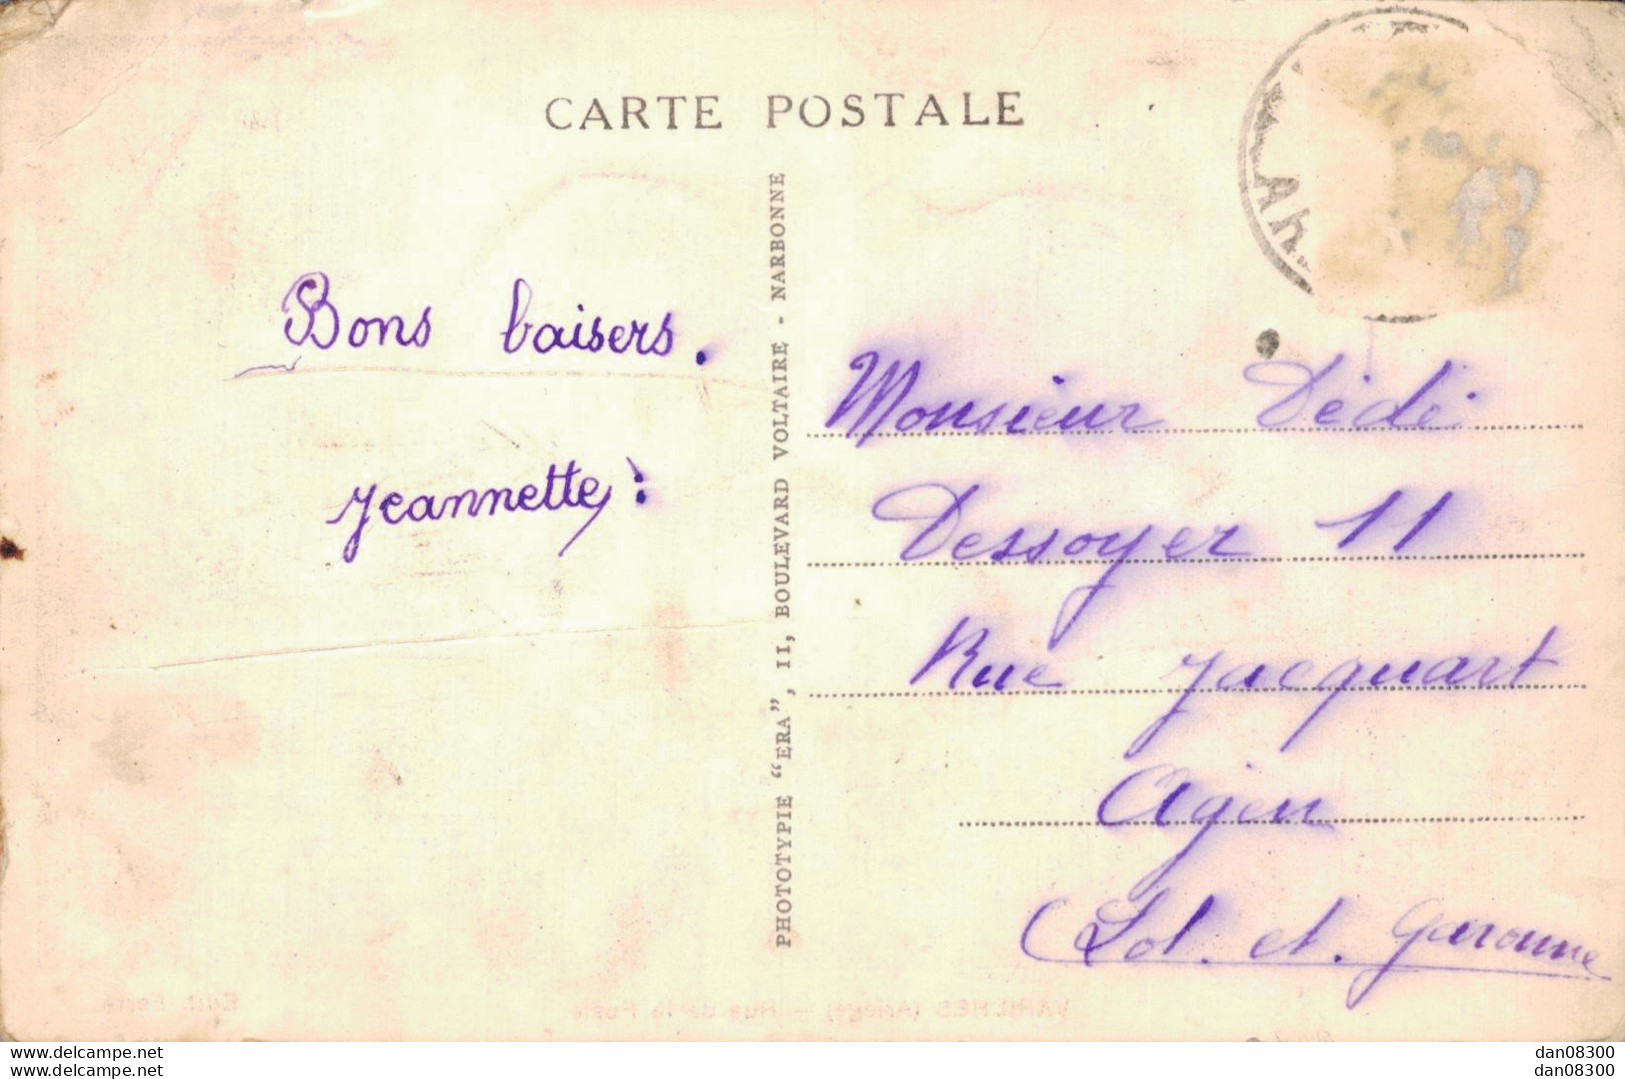 CARTE POSTALE
Bons baisers.
Jeannette:
PHOTOTYPIE "ERA", 11, BOULEVARD VOLTAIRE - NARBONNE
Monsieur Dédé
Dessoyer 11
Rue Jacquart
Agen
(Lot. et. Garonne
VARILHES (Ariège) — Rue de la Poste
www.delcampe.net
www.delcampe.net
dan08300
dan08300